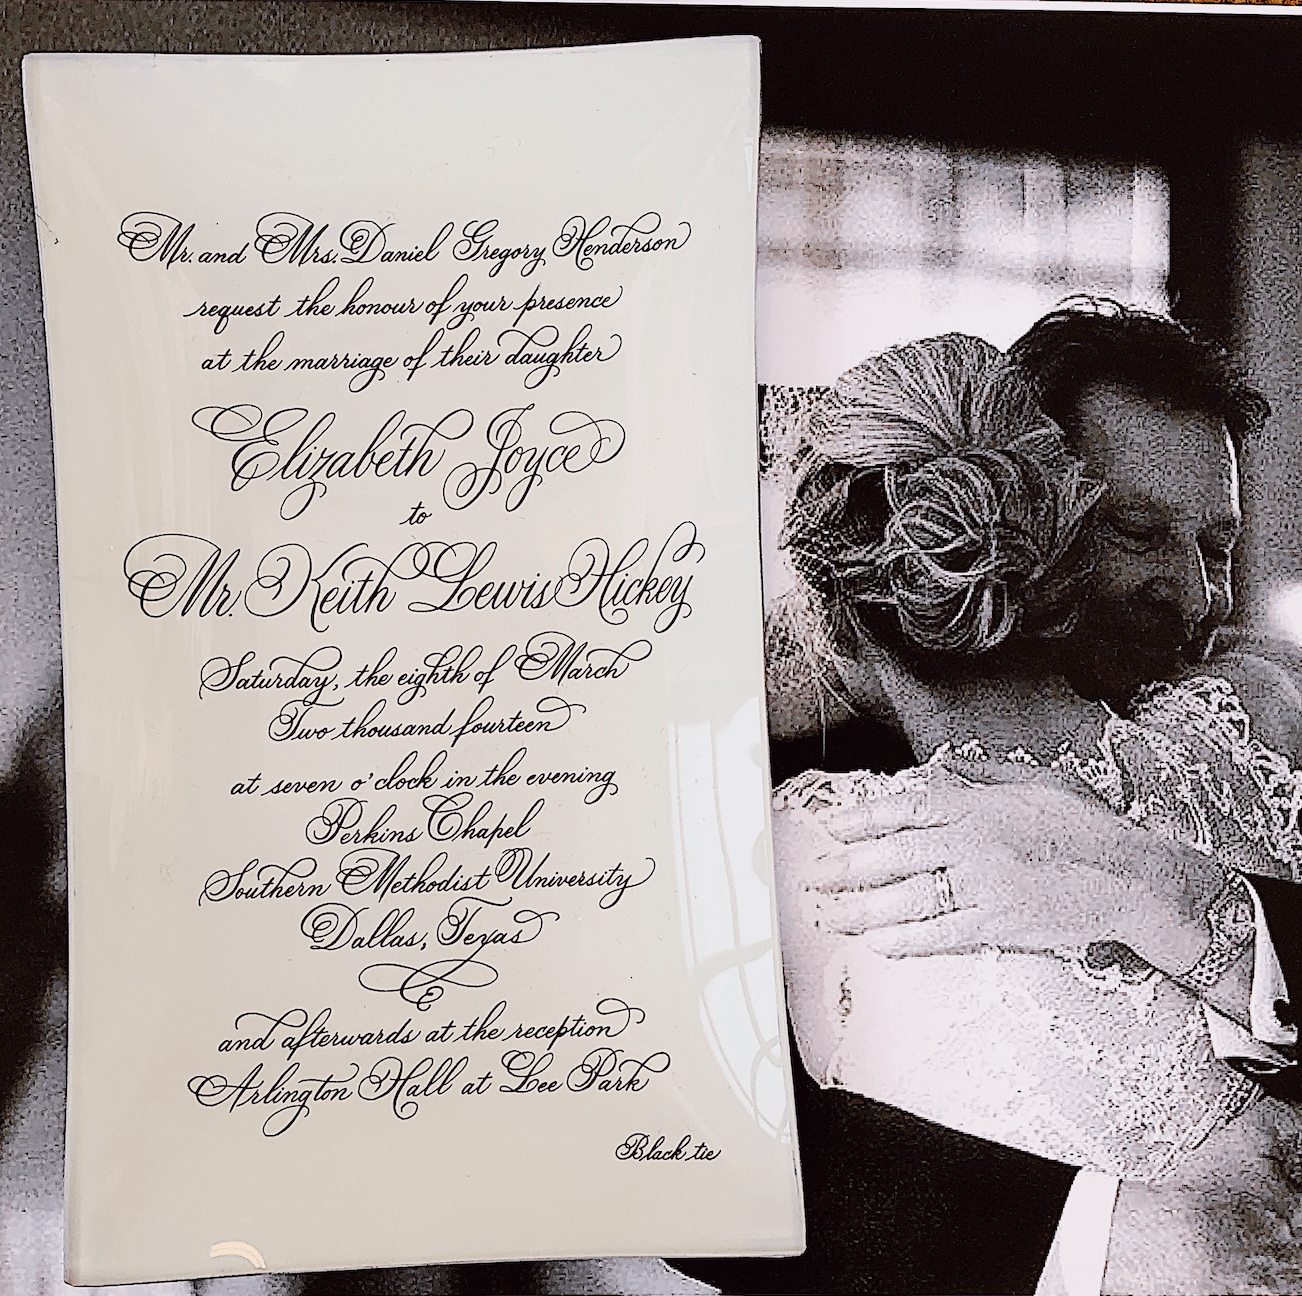 Mr. and Mrs. Daniel Gregory Henderson
request the honour of your presence
at the marriage of their daughter
Elizabeth Joyce
to
Mr. Keith Lewis Hickey
Saturday, the eighth of March
Two thousand fourteen
at seven o'clock in the evening
Perkins Chapel
Southern Methodist University
Dallas, Texas
and afterwards at the reception
Arlington Hall at Lee Park
Black tie